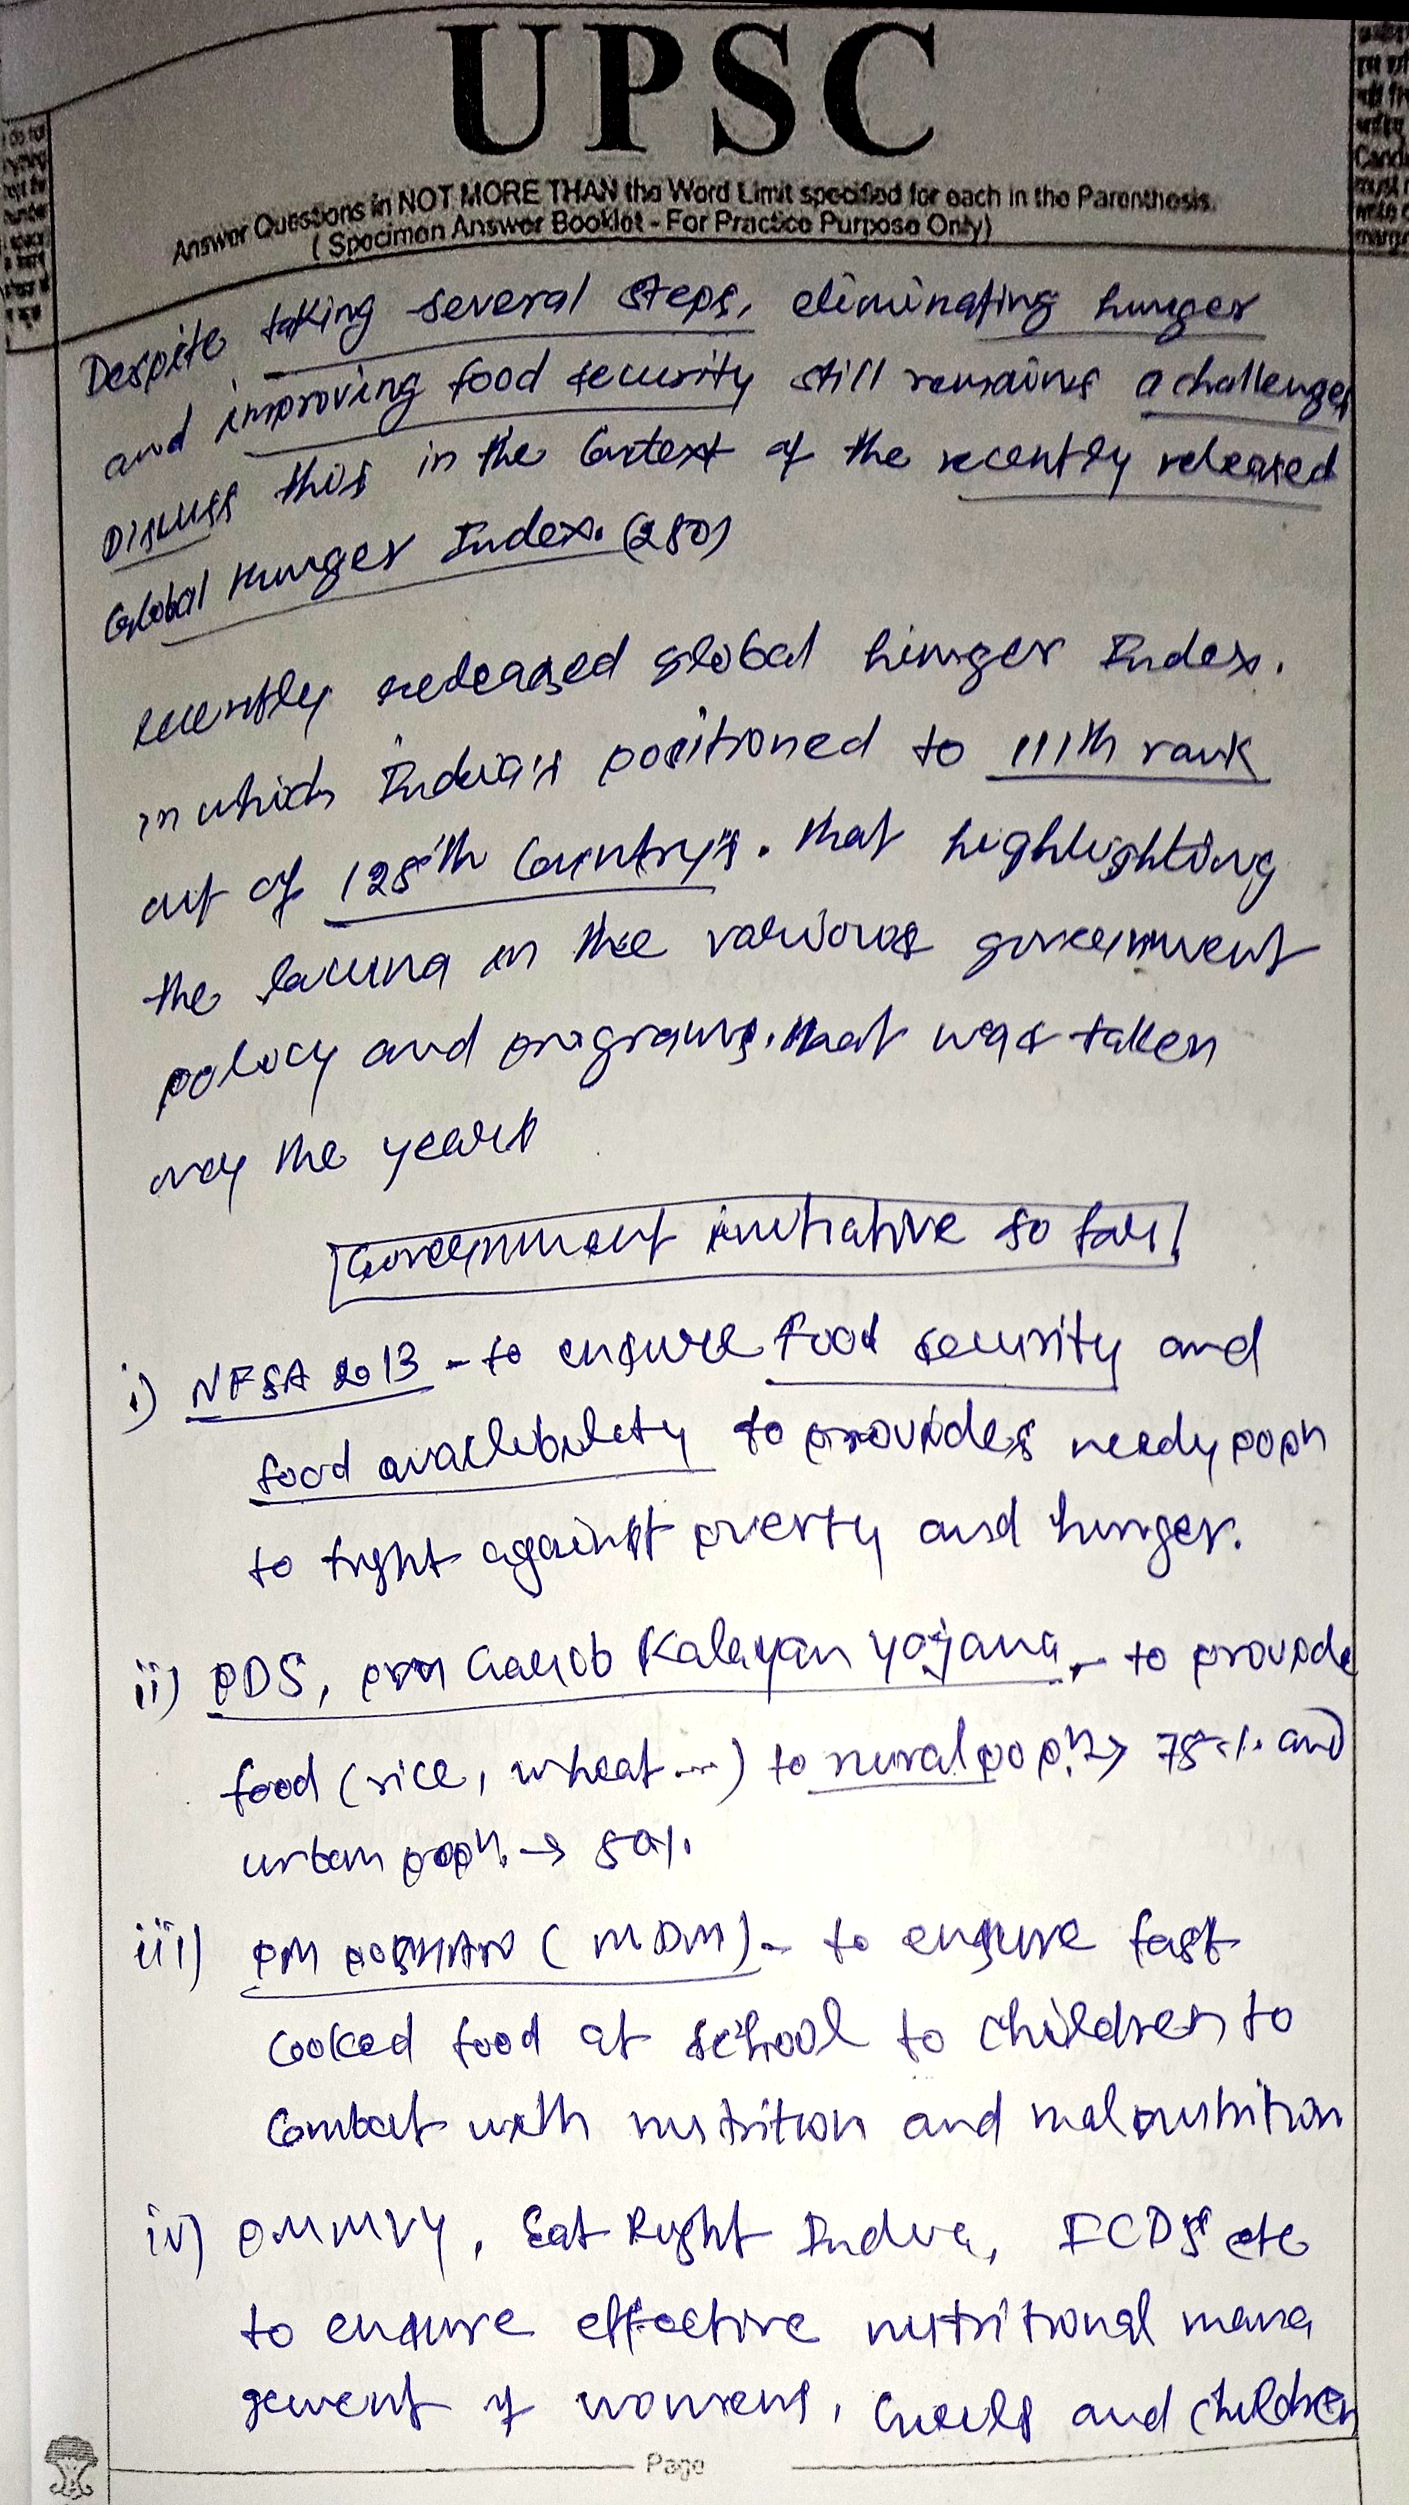 UPSC
Answer Questions in NOT MORE THAN the Word Limit specified for each in the Parenthesis.
( Specimen Answer Booklet - For Practice Purpose Only)
Despite taking several steps, eliminating hunger
and improving food security still remains a challenge,
Discuss this in the Context of the recently released
Global Hunger Index. (250)
recently released global hunger Index.
in which India's positioned to 111th rank
out of 125th Country's. that highlighting
the lacuna in the various government
policy and programs, that was taken
over the years
Government initiative so far
i) NFSA 2013 - to ensure food security and
food availebelety to provides needy popn
to fight against poverty and hunger.
ii) PDS, pm Garib Kalayan Yojana, - to provide
food (rice, wheat...) to rural popn. → 75% and
urban popn. → 50%.
iii) PM POSHAN (MDM) - to ensure fast
cooked food at school to children to
Combat with nutrition and malnutrition
iv) PMMVY, Eat Right India, ICDS etc
to ensure effective nutritional mana
gement of womens, Girls and children
Page